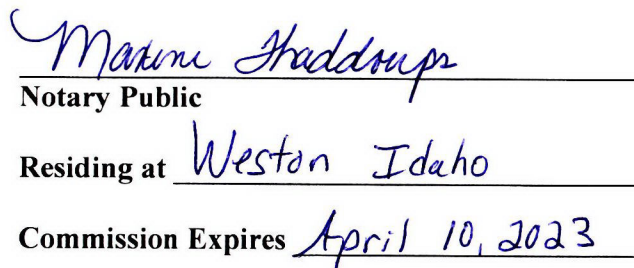 Maxine Shaddoups
Notary Public
Residing at Weston Idaho
Commission Expires April 10, 2023